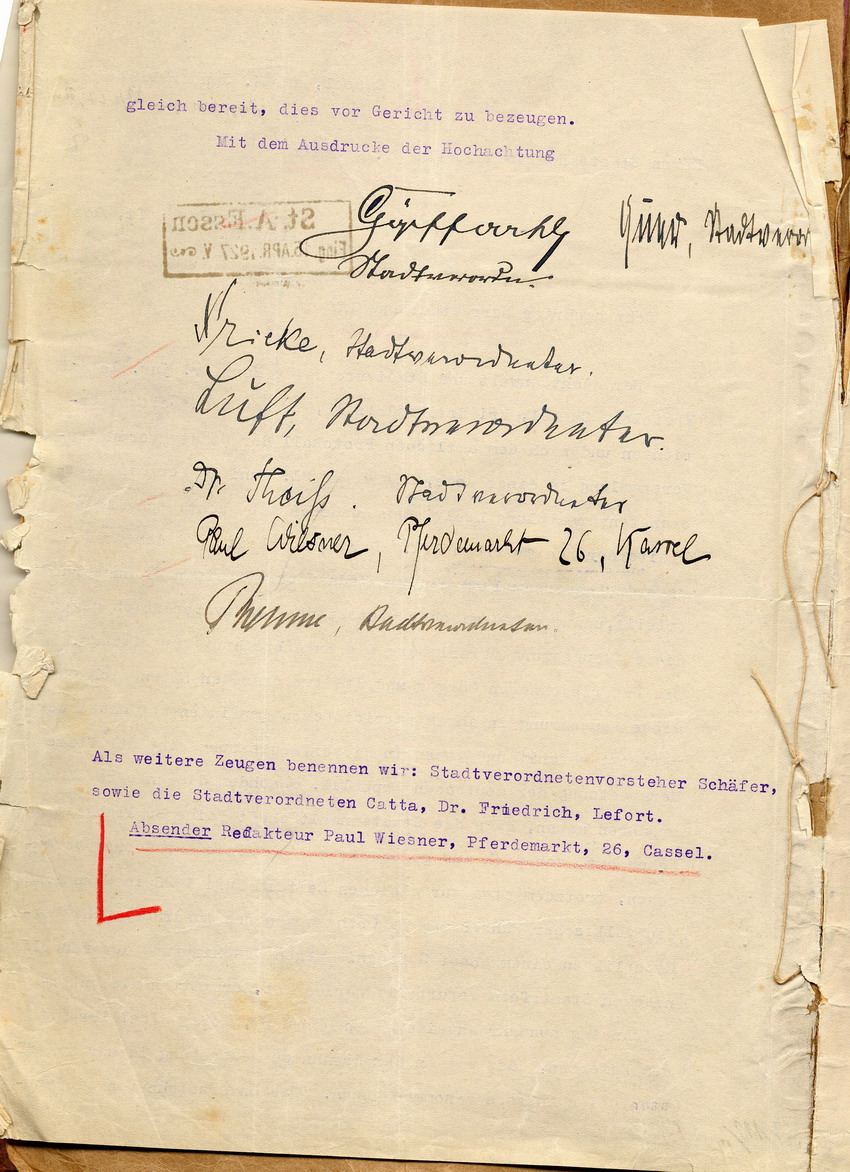 gleich bereit, dies vor Gericht zu bezeugen.
Mit dem Ausdrucke der Hochachtung
St. A. Essen
APR. 1927 V
Stadtverordn.
Fricke, Stadtverordneter.
Luft, Stadtverordneter.
Dr. Theiß. Stadtverordneter
Paul Wiesner, Pferdemarkt 26, Kassel
Themme, Stadtverordneter.
Als weitere Zeugen benennen wir: Stadtverordnetenvorsteher Schäfer,
sowie die Stadtverordneten Catta, Dr. Friedrich, Lefort.
Absender Redakteur Paul Wiesner, Pferdemarkt, 26, Cassel.